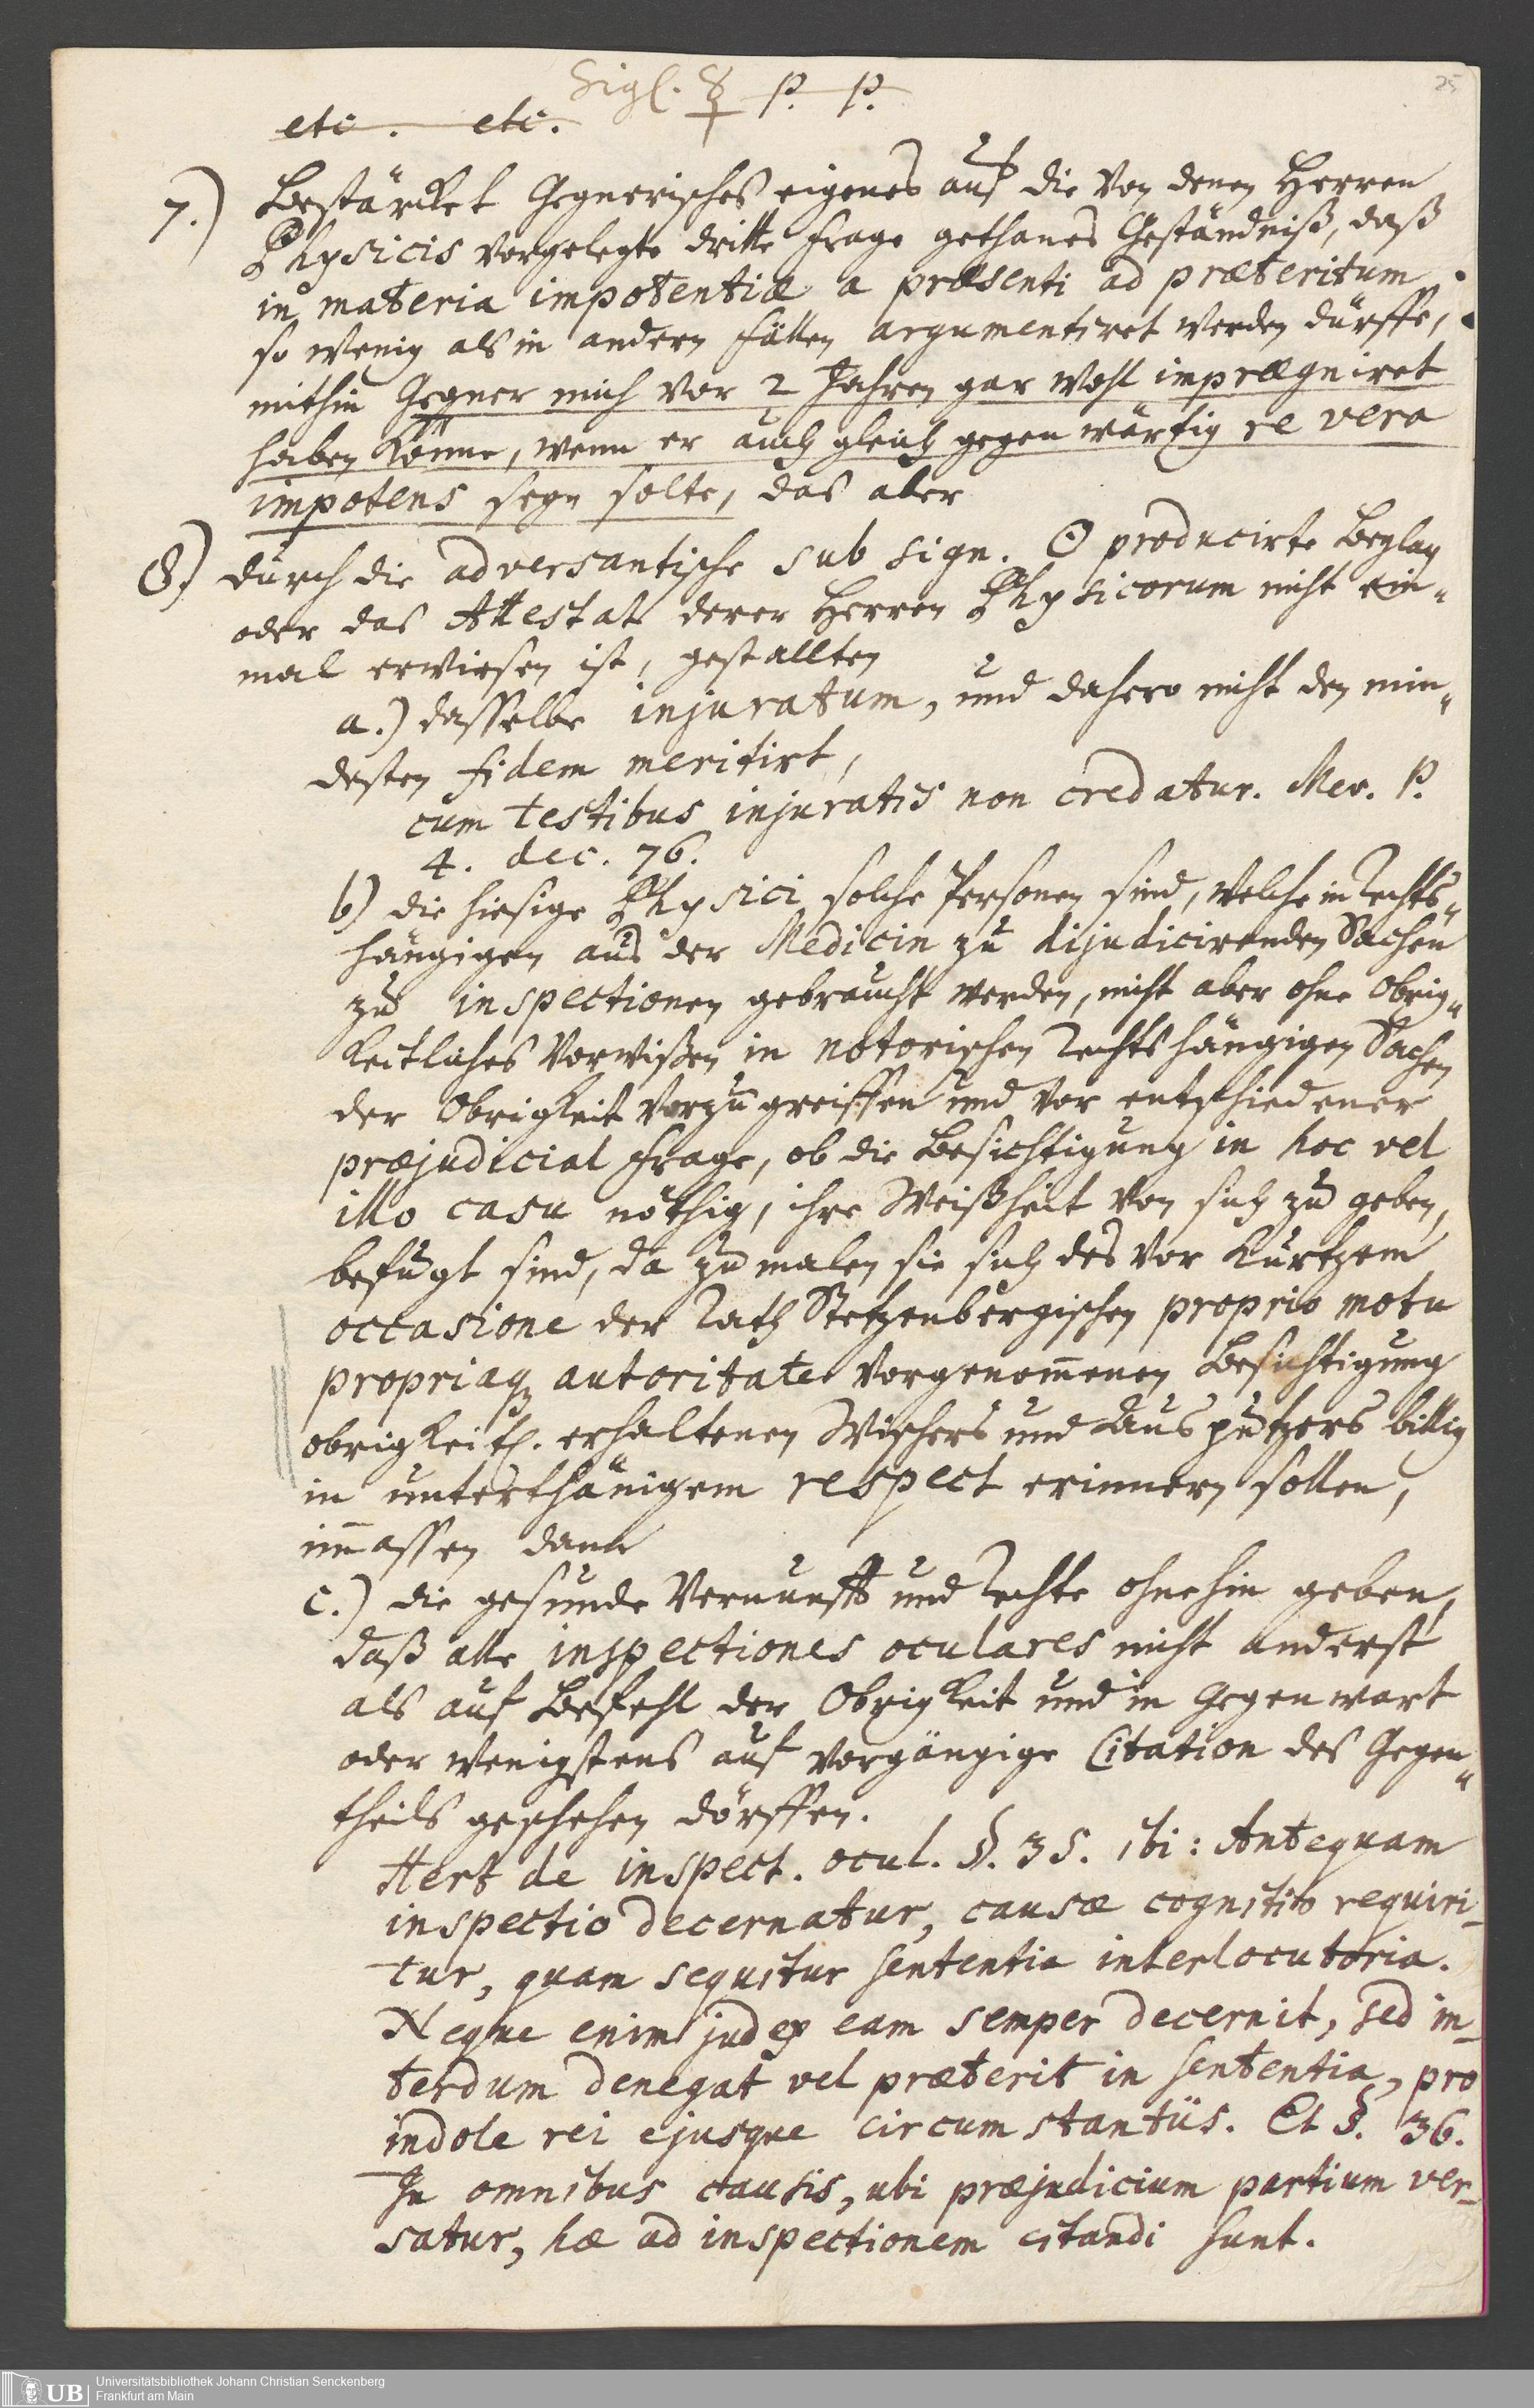 Sigl. ☿ P. P.
25
etc. etc.
7.) Bestärcket Gegnerisches eigenes auf die von denen Herren
Physicis vorgelegte dritte Frage gethanes Geständniß, daß
in materia impotentiæ a præsenti ad præteritum
so wenig als in andern Fällen argumentiret werden dürffe,
mithin Gegner mich vor 2 Jahren gar wohl imprægniret
haben könne, wenn er auch gleich gegenwärtig re vera
impotens seyn solte, das aber
8.) durch die adversantische sub sign. ☉ producirte Beylag
oder das Attestat derer Herren Physicorum nicht ein„
mal erwiesen ist, gestallten
a.) dasselbe injuratum, und dahero nicht den min„
desten fidem meritirt,
cum testibus injuratis non credatur. Mev. P.
4. dec. 76.
b) die hiesige Physici solche Personen sind, welche in rechts„
hängigen aus der Medicin zu dijudicirenden Sachen
zu inspectionen gebraucht werden, nicht aber ohne Obrig„
keitliches Vorwißen in notorischen rechtshängigen Sachen
der Obrigkeit vorzugreiffen und vor entschiedener
præjudicial Frage, ob die Besichtigung in hoc vel
illo casu nöthig, ihre Weißheit von sich zu geben,
befugt sind, da zumalen sie sich des vor kurtzem
occasione der Rath Stetzenbergischen proprio motu
propriaq. autoritate vorgenom̅enen Besichtigung
obrigkeitl. erhaltenen Wischers und Ausputzers billig
in unterthänigem respect erinnern sollen,
im̅assen dann
c.) die gesunde Vernunfft und Rechte ohnehin geben,
daß alle inspectiones oculares nicht anderst
als auf Befehl der Obrigkeit und in Gegenwart
oder wenigstens auf vorgängige Citation des Gegen„
theils geschehen dörffen.
Hert de inspect. ocul. §. 35. ibi: Antequam
inspectio decernatur, causæ cognitio requiri-
tur, quam sequitur sententia interlocutoria.
Neque enim judex eam semper decernit, sed in-
terdum denegat vel præterit in sententia, pro
indole rei ejusque circumstantiis. Et §. 36.
In omnibus causis, ubi præjudicium partium ver-
satur, hæ ad inspectionem citandi sunt.
UB Universitätsbibliothek Johann Christian Senckenberg
Frankfurt am Main